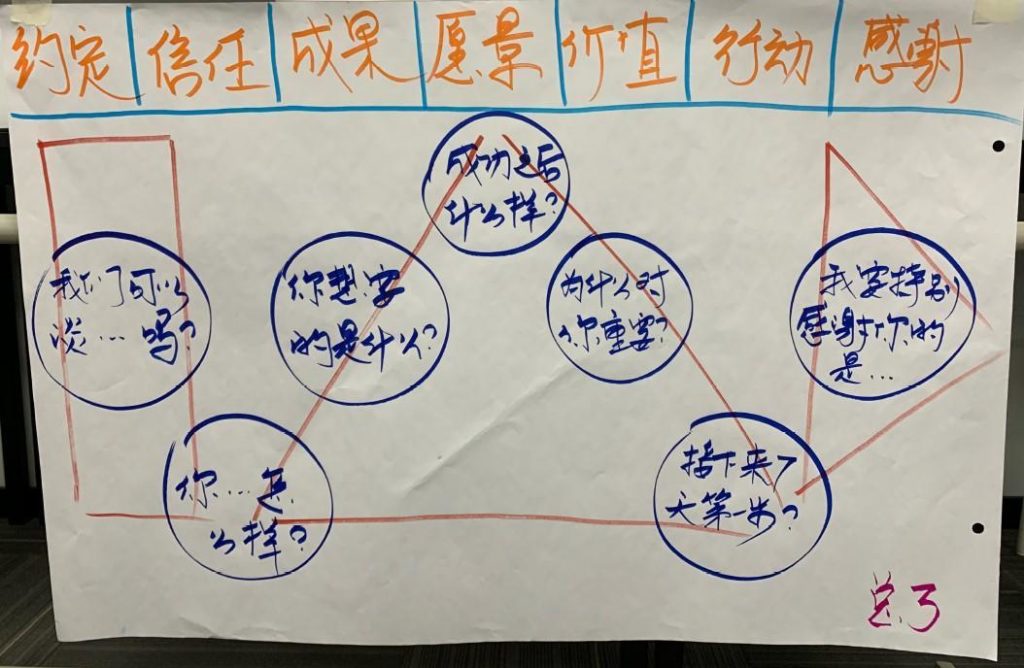 约定 信任 成果 愿景 价值 行动 感谢
我们可以
谈…吗?
你…怎
么样?
你想要
的是什么?
成功之后
什么样?
为什么对
你重要?
接下来7
天第一步?
我要特别
感谢你的
是…
总.3